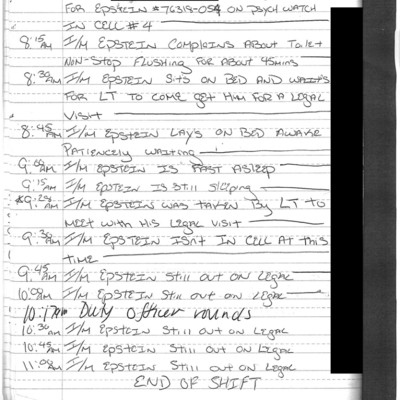 FOR EPSTEIN #76318-054 ON PSYCH WATCH
IN CELL #4
8:15 AM I/M EPSTEIN COMPLAINS ABOUT TOILET
NON-STOP FLUSHING FOR ABOUT 45MINS
8:30 AM I/M EPSTEIN SITS ON BED AND WAITS
FOR LT TO COME GET HIM FOR A LEGAL
VISIT
8:45 AM I/M EPSTEIN LAYS ON BED AWAKE
PATIENCELY WAITING
9:00 AM I/M EPSTEIN IS FAST ASLEEP
9:15 AM I/M EPSTEIN IS STILL SLEEPING
I/M EPSTEIN WAS TAKEN BY LT TO
MEET WITH HIS LEGAL VISIT
9:30 AM I/M EPSTEIN ISNT IN CELL AT THIS
TIME
9:45 AM I/M EPSTEIN STILL OUT ON LEGAL
10:00 AM I/M EPSTEIN STILL OUT ON LEGAL
10:17am Duty officer rounds
10:30 AM I/M EPSTEIN STILL OUT ON LEGAL
10:45 AM I/M EPSTEIN STILL OUT ON LEGAL
11:00 AM I/M EPSTEIN STILL OUT ON LEGAL
END OF SHIFT